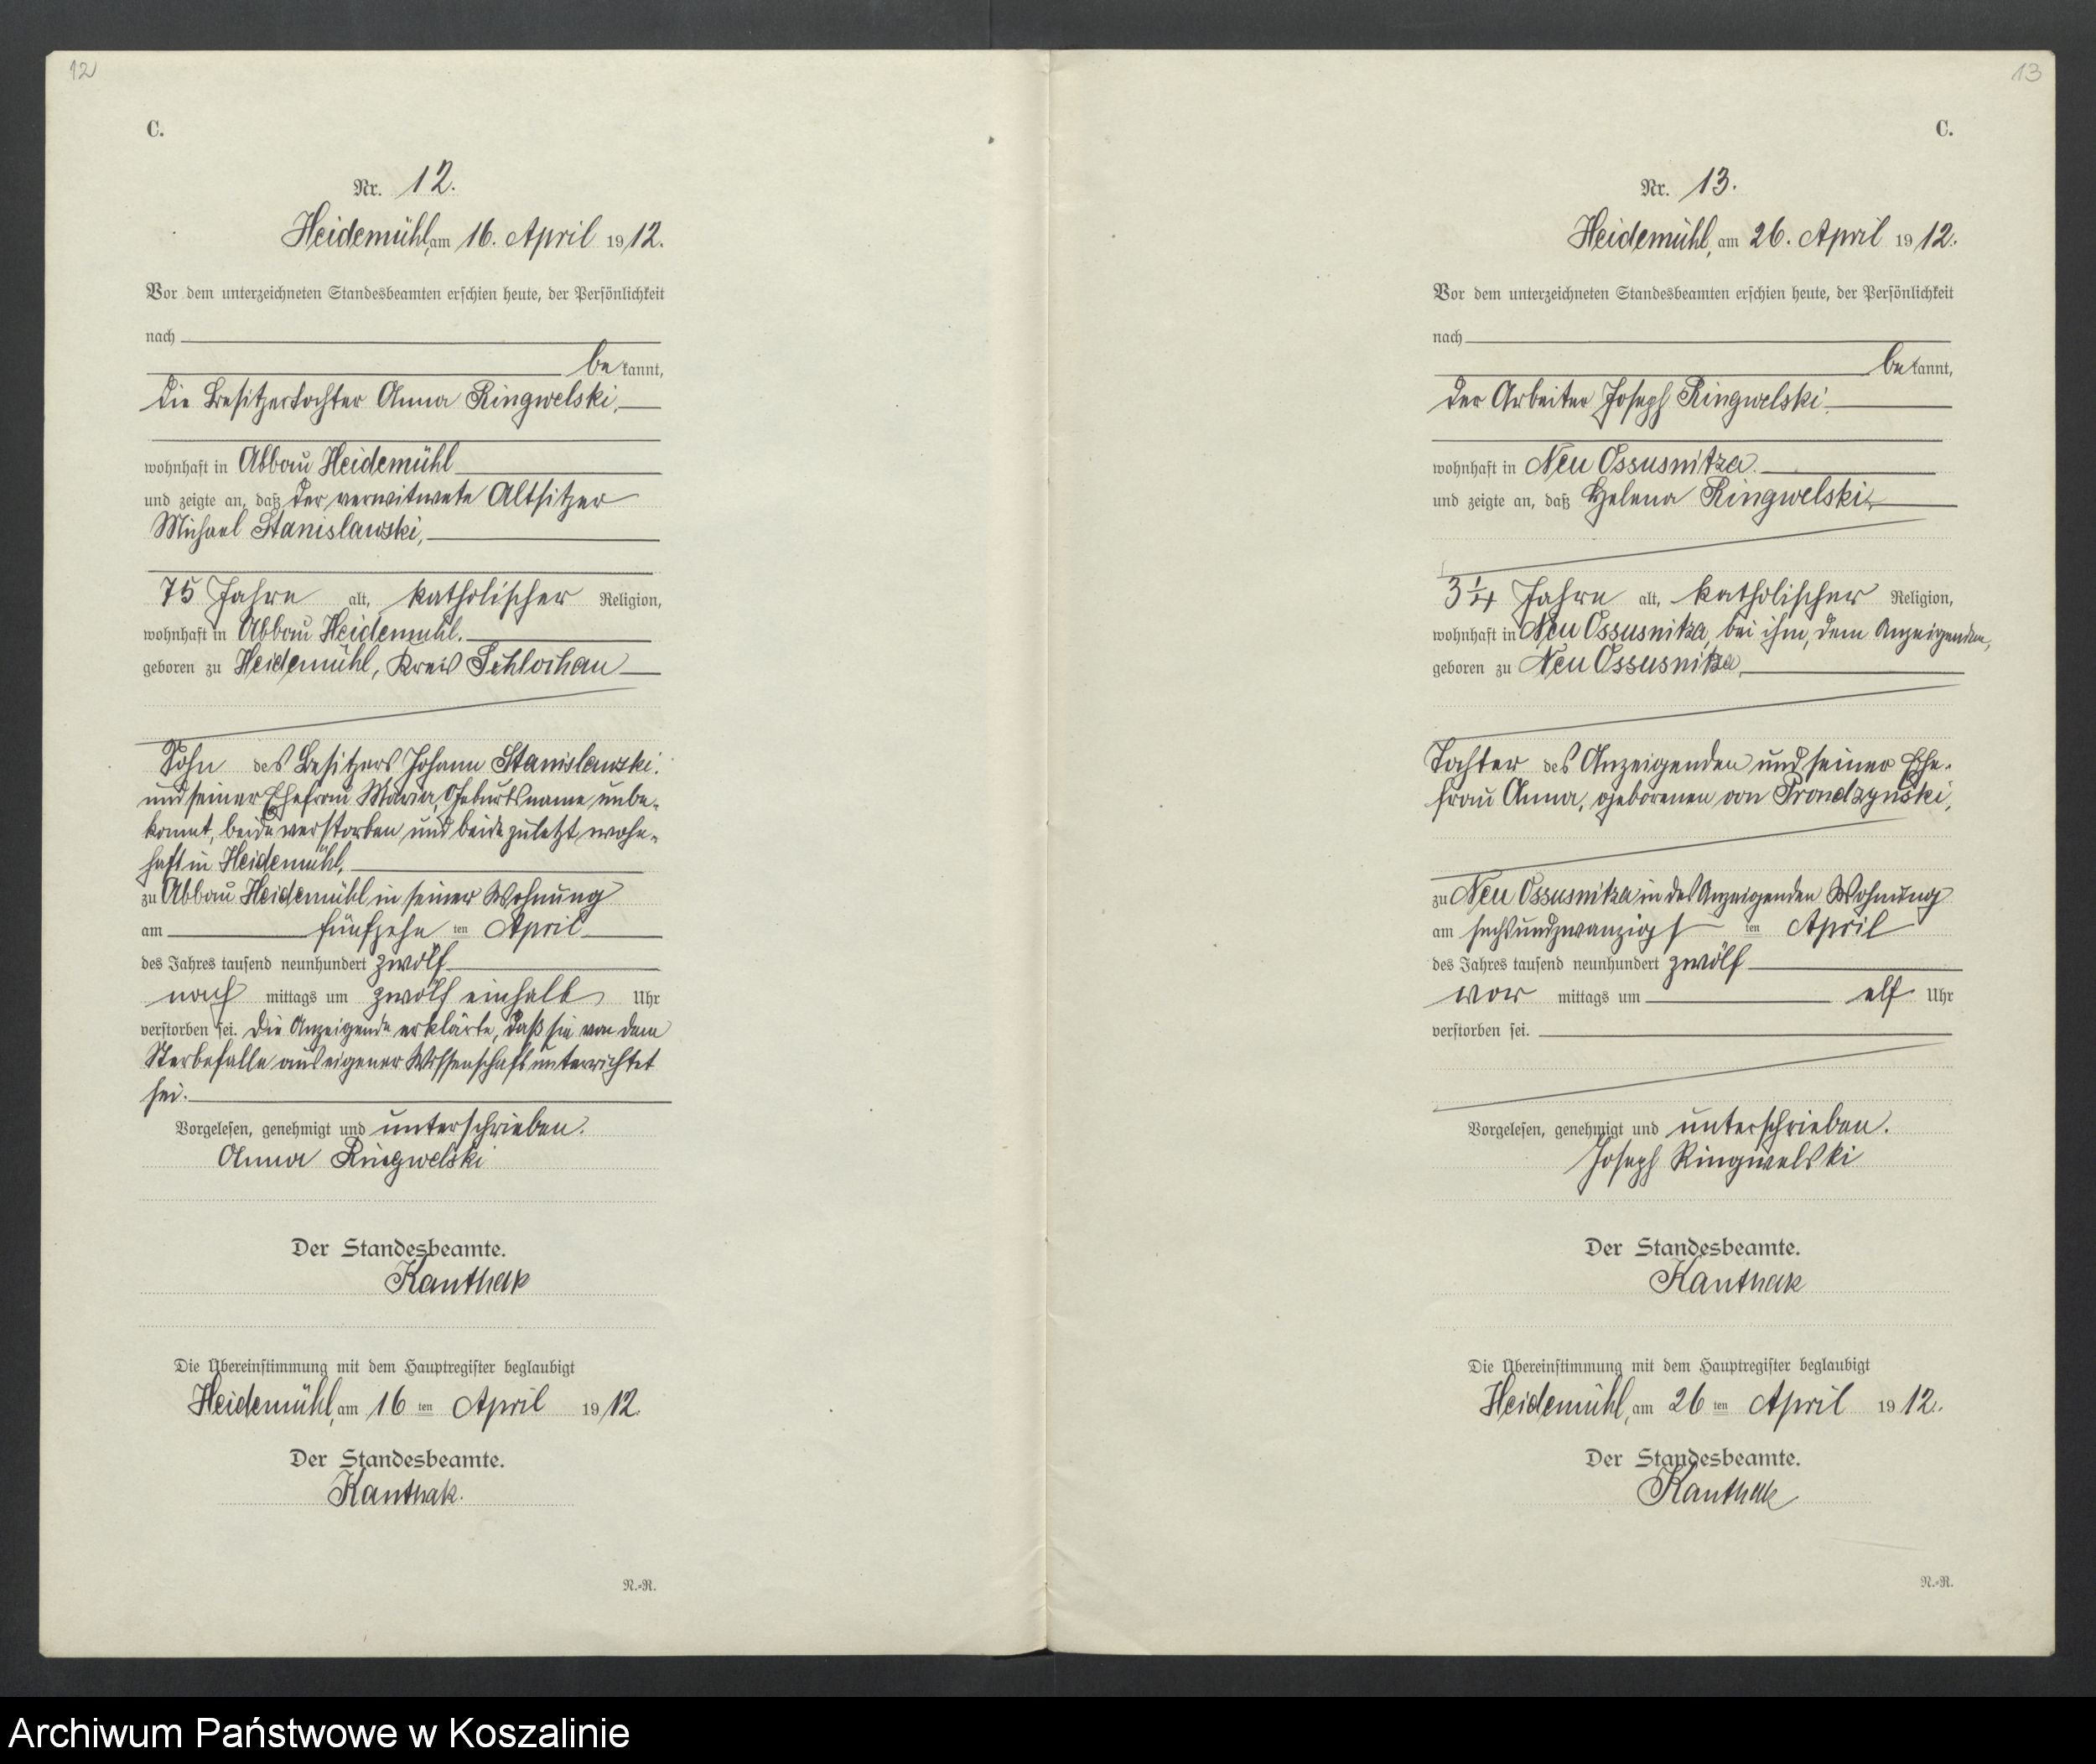 12
C.
Nr. 12.
Heidemühl, am 16. April 1912.
Vor dem unterzeichneten Standesbeamten erschien heute, der Persönlichkeit
nach
bekannt,
die Besitzertochter Anna Ringwelski,
wohnhaft in Abbau Heidemühl
und zeigte an, daß der verwitwete Altsitzer
Michael Stanislawski,
75 Jahre alt, katholischer Religion,
wohnhaft in Abbau Heidemühl.
geboren zu Heidemühl, Kreis Schlochau
Sohn des Besitzers Johann Stanislawski
und seiner Ehefrau Maria, Geburtsname unbe-
kannt, beide verstorben und beide zuletzt wohn-
haft in Heidemühl,
zu Abbau Heidemühl in seiner Wohnung
am fünfzehn ten April
des Jahres tausend neunhundert zwölf
nach mittags um zwölf einhalb Uhr
verstorben sei. Die Anzeigende erklärte, daß sie von dem
Sterbefalle aus eigener Wissenschaft unterrichtet
sei.
Vorgelesen, genehmigt und unterschrieben.
Anna Ringwelski
Der Standesbeamte.
Kanthak
Die Übereinstimmung mit dem Hauptregister beglaubigt
Heidemühl, am 16 ten April 1912.
Der Standesbeamte.
Kanthak.
N.-R.
13
C.
Nr. 13.
Heidemühl, am 26. April 1912.
Vor dem unterzeichneten Standesbeamten erschien heute, der Persönlichkeit
nach
bekannt,
der Arbeiter Joseph Ringwelski,
wohnhaft in Neu Ossusnitza.
und zeigte an, daß Helena Ringwelski,
3 1/4 Jahre alt, katholischer Religion,
wohnhaft in Neu Ossusnitza, bei ihm, dem Anzeigenden,
geboren zu Neu Ossusnitza,
Tochter des Anzeigenden und seiner Ehe-
frau Anna, geborenen von Prondzynski,
zu Neu Ossusnitza in des Anzeigenden Wohnung
am sechsundzwanzigs ten April
des Jahres tausend neunhundert zwölf
vor mittags um elf Uhr
verstorben sei.
Vorgelesen, genehmigt und unterschrieben.
Joseph Ringwelski
Der Standesbeamte.
Kanthak
Die Übereinstimmung mit dem Hauptregister beglaubigt
Heidemühl, am 26 ten April 1912.
Der Standesbeamte.
Kanthak
N.-R.
Archiwum Państwowe w Koszalinie